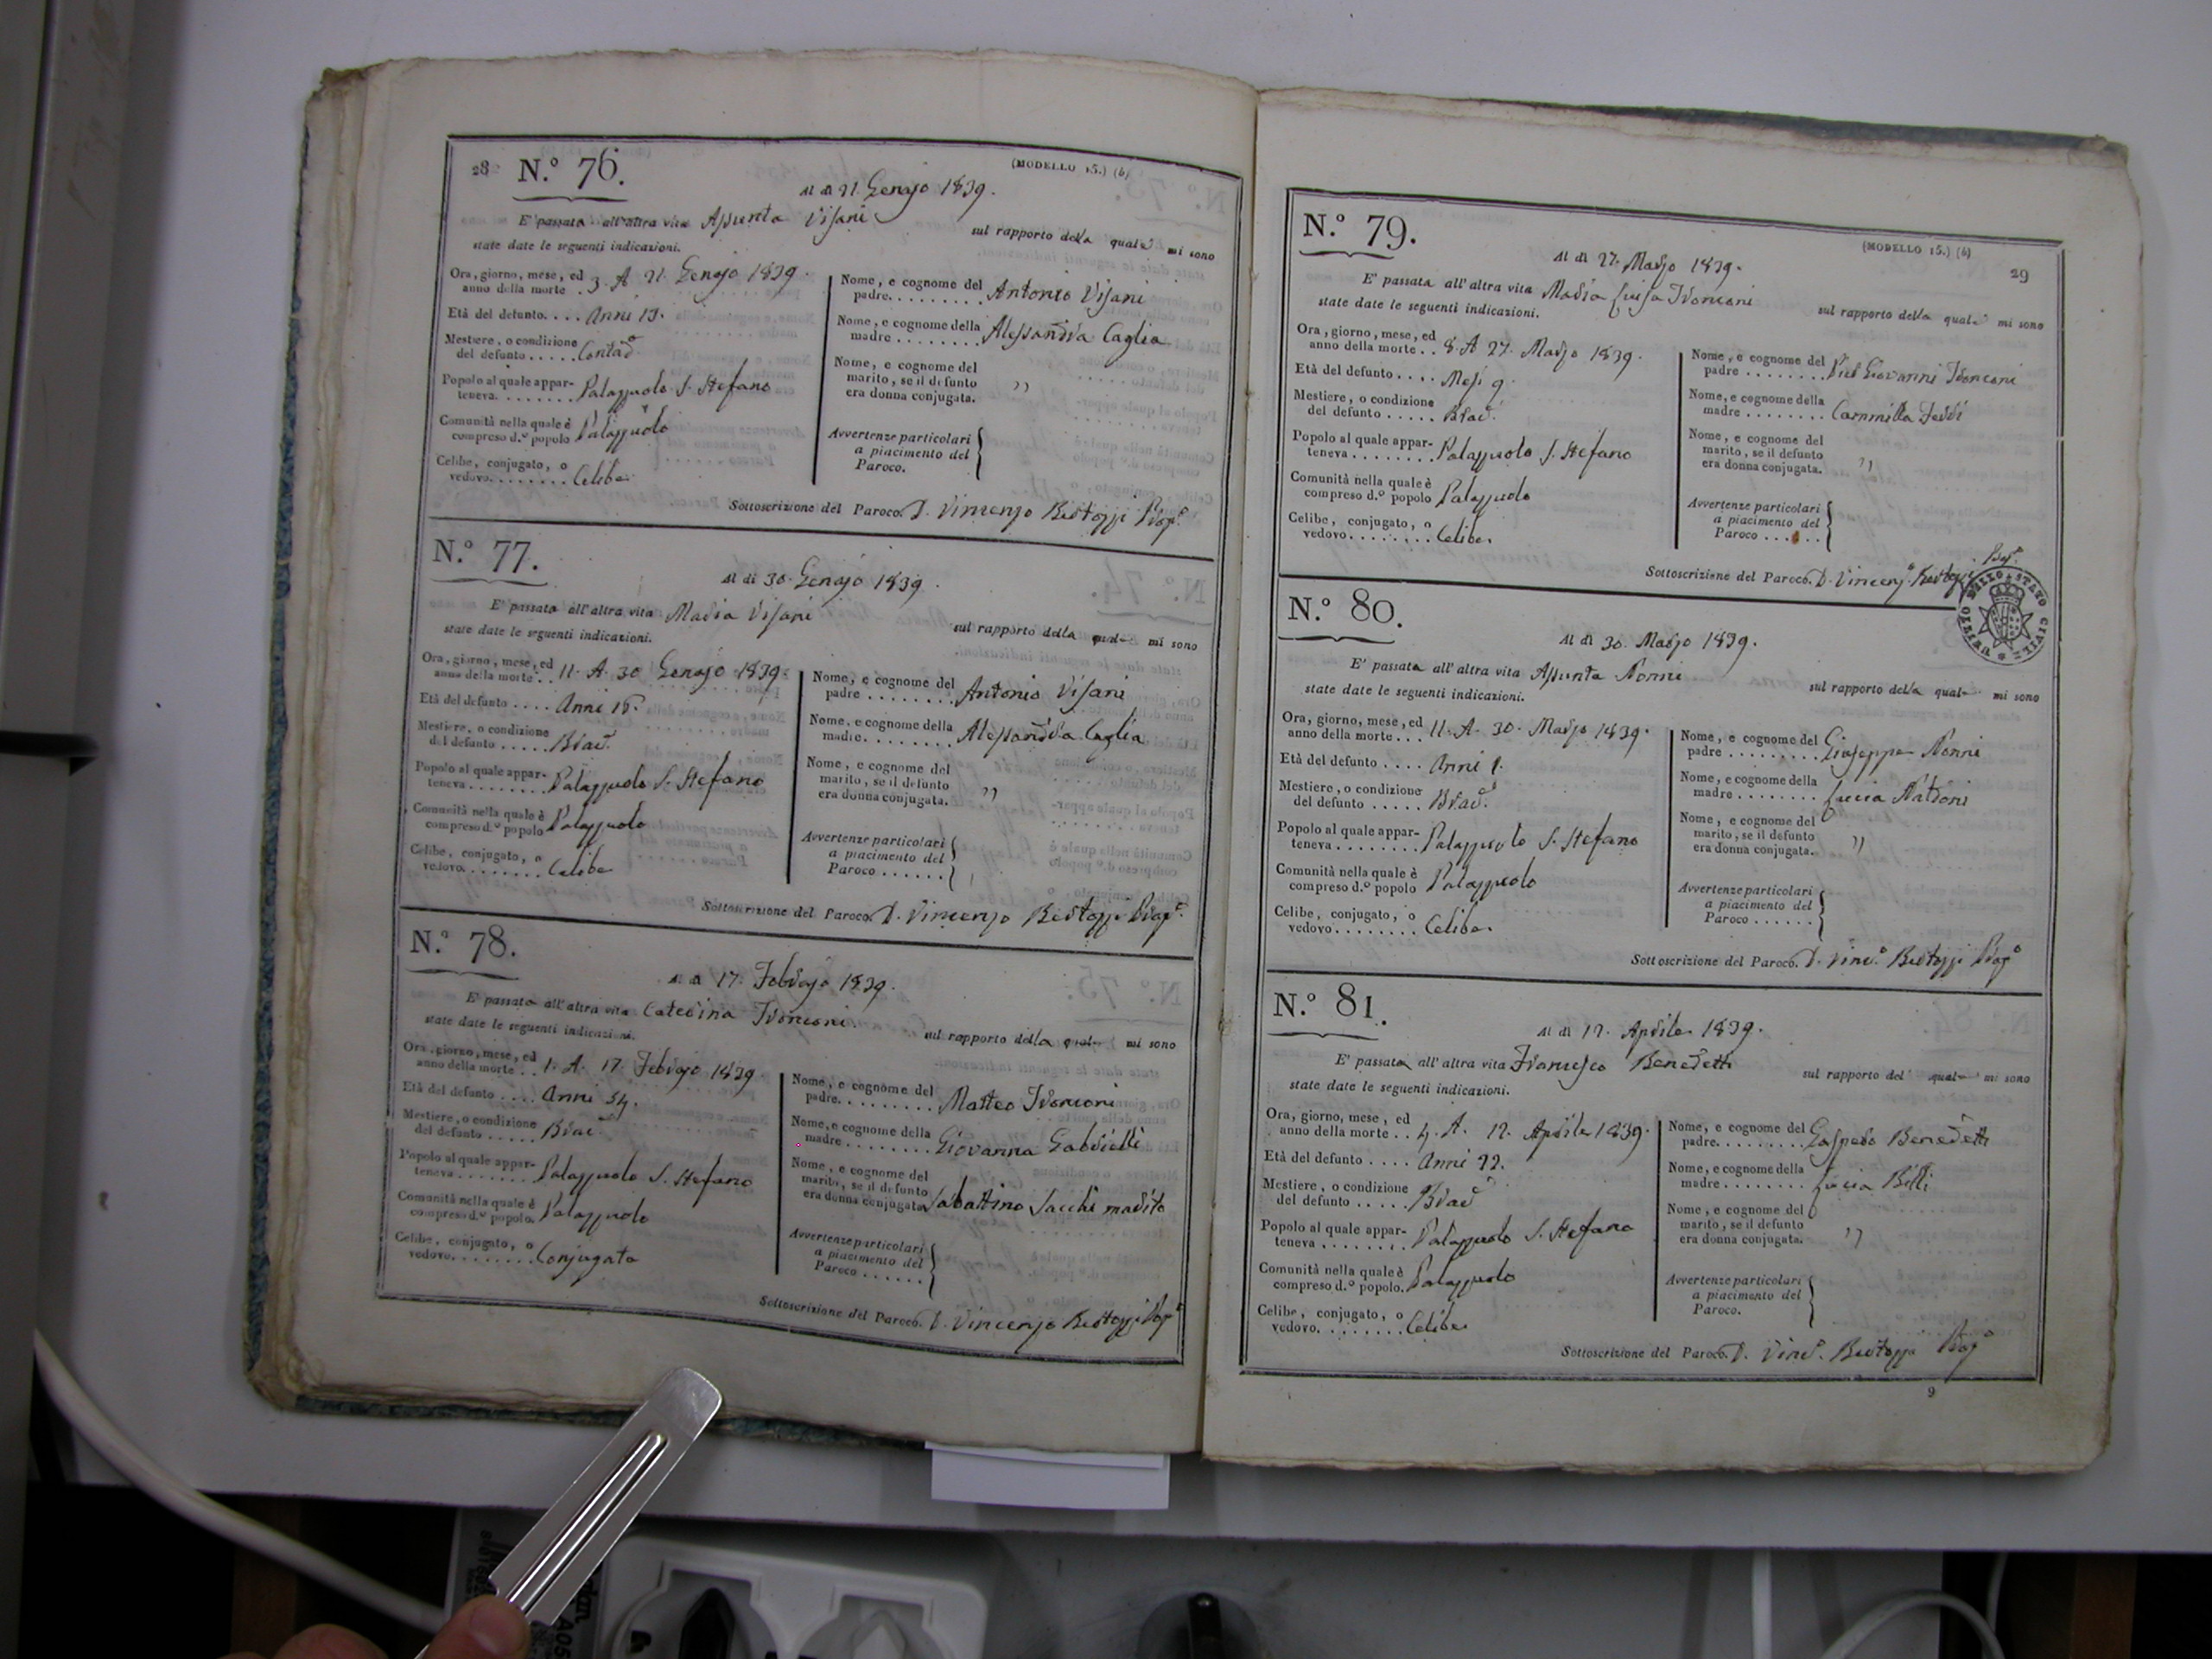 28 N.º 76. (MODELLO 15.) (b)
Al dì 21. Genajo 1839.
E' passata all'altra vita Assunta Visani sul rapporto della quale mi sono
state date le seguenti indicazioni.
Ora, giorno, mese, ed
anno della morte . 3. A 21. Genajo 1839.
Età del defunto. . . . Anni
Mestiere, o condizione
del defunto . . . . . Contad.ª
Popolo al quale appar-
teneva. . . . . . . . Palazzuolo S. Stefano
Comunità nella quale è
compreso d.º popolo Palazzuolo
Celibe, conjugato, o
vedovo. . . . . . . . Celibe
Nome, e cognome del
padre. . . . . . . . . Antonio Visani
Nome, e cognome della
madre . . . . . . . . Alessandra Caglia
Nome, e cognome del
marito, se il defunto
era donna conjugata. ”
Avvertenze particolari
a piacimento del
Paroco.
Sottoscrizione del Paroco. D. Vincenzo Bertozzi Prop.º
N.º 77.
Al dì 30. Genajo 1839.
E' passata all'altra vita Maria Visani sul rapporto della qual mi sono
state date le seguenti indicazioni.
Ora, giorno, mese, ed
anno della morte . . 11. A. 30 Genajo 1839.
Età del defunto . . . . Anni
Mestiere, o condizione
del defunto . . . . . Brac.
Popolo al quale appar-
teneva . . . . . . . . Palazzuolo S. Stefano
Comunità nella quale è
compreso d.º popolo Palazzuolo
Celibe, conjugato, o
vedovo. . . . . . . . Celibe
Nome, e cognome del
padre . . . . . . . . Antonio Visani
Nome, e cognome della
madre. . . . . . . . Alessandra Caglia
Nome, e cognome del
marito, se il defunto
era donna conjugata. ”
Avvertenze particolari
a piacimento del
Paroco . . . . . .
Sottoscrizione del Paroco. D. Vincenzo Bertozzi Prop.º
N.º 78.
Al dì 17. Febrajo 1839.
E' passata all'altra vita Caterina Tronconi sul rapporto della qual mi sono
state date le seguenti indicazioni.
Ora, giorno, mese, ed
anno della morte . . 1. A. 17. Febrajo 1839.
Età del defunto . . . . Anni 54.
Mestiere, o condizione
del defunto . . . . . Brac.
Popolo al quale appar-
teneva . . . . . . . Palazzuolo S. Stefano
Comunità nella quale è
compreso d.º popolo. Palazzuolo
Celibe, conjugato, o
vedovo. . . . . . . . Conjugata
Nome, e cognome del
padre. . . . . . . . . Matteo Tronconi
Nome, e cognome della
madre . . . . . . . . Giovanna Gabrielli
Nome, e cognome del
marito, se il defunto
era donna conjugata Sabattino Sacchi marito
Avvertenze particolari
a piacimento del
Paroco . . . . . .
Sottoscrizione del Paroco. D. Vincenzo Bertozzi Prop.º
N.º 79. (MODELLO 15.) (b) 29
Al dì 27. Marzo 1839.
E' passata all'altra vita Maria Luisa Tronconi sul rapporto della qual mi sono
state date le seguenti indicazioni.
Ora, giorno, mese, ed
anno della morte . . 8. A 27. Marzo 1839.
Età del defunto . . . . Mesi 9.
Mestiere, o condizione
del defunto . . . . . Brac.
Popolo al quale appar-
teneva . . . . . . . . Palazzuolo S. Stefano
Comunità nella quale è
compreso d.º popolo Palazzuolo
Celibe, conjugato, o
vedovo. . . . . . . . Celibe.
Nome, e cognome del
padre . . . . . . . . Pier Giovanni Tronconi
Nome, e cognome della
madre . . . . . . . . Cammilla
Nome, e cognome del
marito, se il defunto
era donna conjugata. ”
Avvertenze particolari
a piacimento del
Paroco . . . . . .
Sottoscrizione del Paroco. D. Vincenz.º Bertozzi Prop.º
UFIZIO DELLO STATO CIVILE
N.º 80.
Al dì 30. Marzo 1839.
E' passata all'altra vita Assunta Nonni sul rapporto della qual mi sono
state date le seguenti indicazioni.
Ora, giorno, mese, ed
anno della morte . . . 11. A. 30. Marzo 1839.
Età del defunto . . . . Anni 1.
Mestiere, o condizione
del defunto . . . . . Brac.
Popolo al quale appar-
teneva . . . . . . . . Palazzuolo S. Stefano
Comunità nella quale è
compreso d.º popolo Palazzuolo
Celibe, conjugato, o
vedovo. . . . . . . . Celibe.
Nome, e cognome del
padre . . . . . . . . Giuseppe Nonni
Nome, e cognome della
madre. . . . . . . . Lucia Naldoni
Nome, e cognome del
marito, se il defunto
era donna conjugata. ”
Avvertenze particolari
a piacimento del
Paroco . . . . . .
Sottoscrizione del Paroco. D. Vinc.º Bertozzi Prop.º
N.º 81.
Al dì 12. Aprile 1839.
E' passata all'altra vita Francesco Benedetti sul rapporto del qual mi sono
state date le seguenti indicazioni.
Ora, giorno, mese, ed
anno della morte . . 4. A. 12. Aprile 1839.
Età del defunto . . . . Anni 22.
Mestiere, o condizione
del defunto . . . . . Brac.
Popolo al quale appar-
teneva . . . . . . . . Palazzuolo S. Stefano
Comunità nella quale è
compreso d.º popolo. Palazzuolo
Celibe, conjugato, o
vedovo. . . . . . . . Celibe
Nome, e cognome del
padre. . . . . . . . . Gaspero Benedetti
Nome, e cognome della
madre . . . . . . . . Lucia Billi
Nome, e cognome del
marito, se il defunto
era donna conjugata. ”
Avvertenze particolari
a piacimento del
Paroco.
Sottoscrizione del Paroco. D. Vinc. Bertozzi Prop.º
9